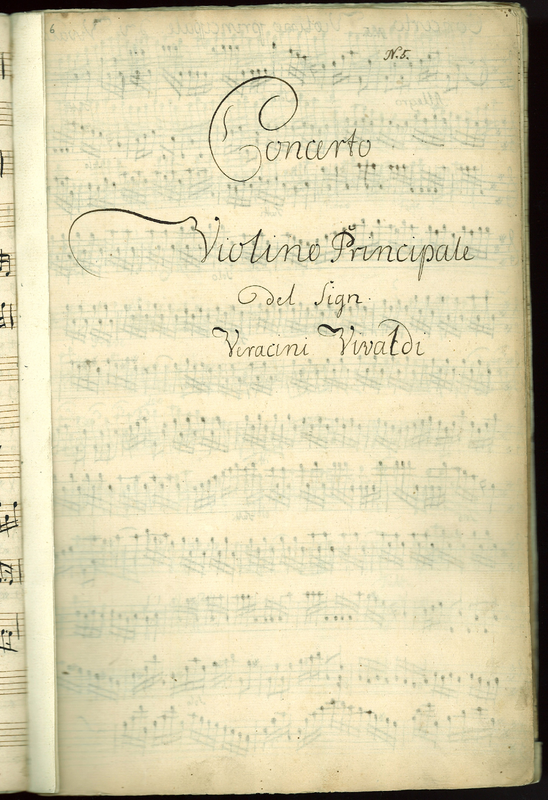 6
N. 5.
Concerto
Violino Principale
del Sign.
Veracini Vivaldi